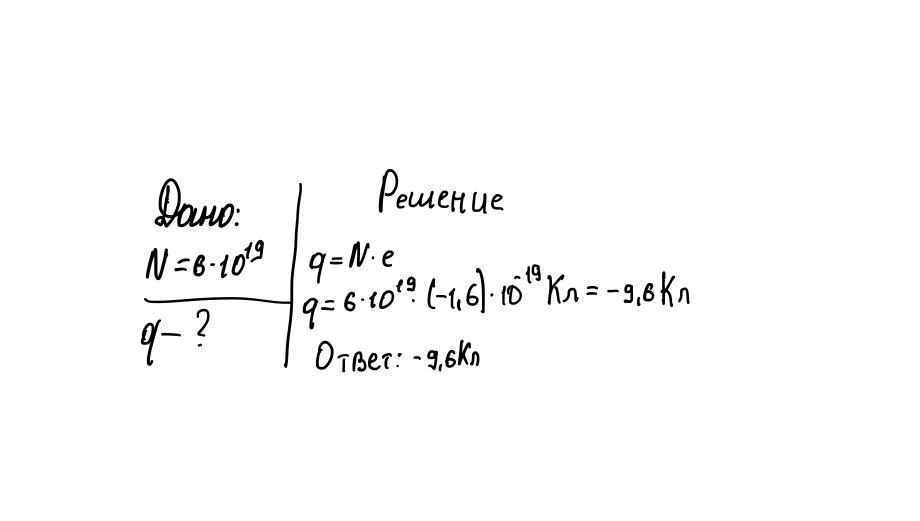 Дано:
N = 6·10¹⁹
q – ?
Решение
q = N·e
q = 6·10¹⁹·(-1,6)·10⁻¹⁹ Кл = -9,6 Кл
Ответ: -9,6 Кл